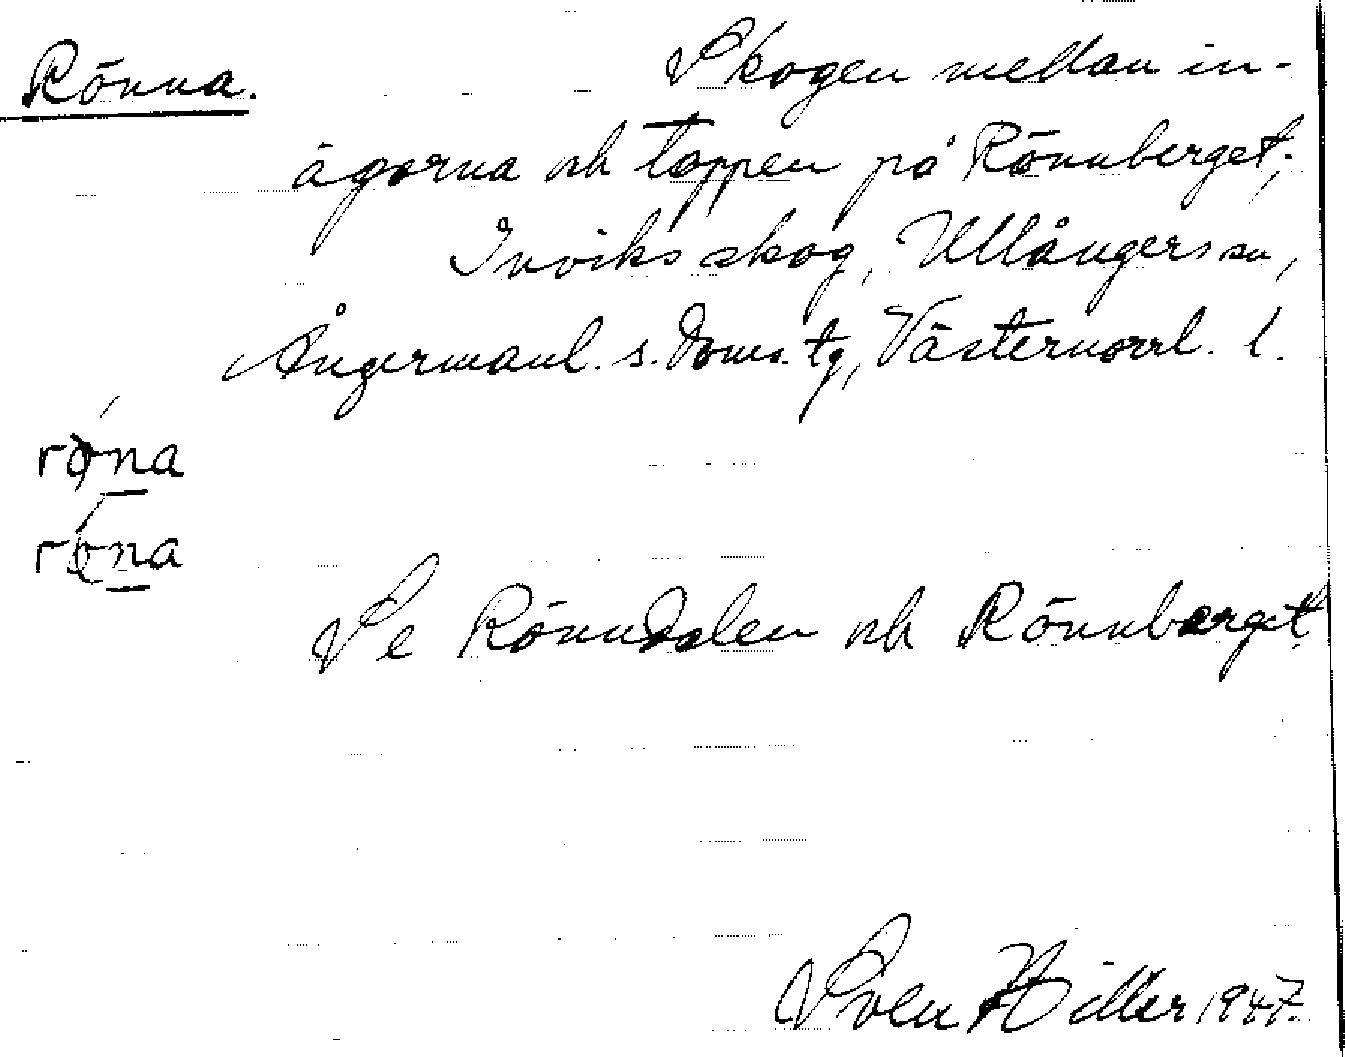 Rönna.
Skogen mellan in-
ägorna och toppen på Rönnberget;
Inviks skog, Ullångers sn,
Ångermanl. s. doms. tg, Västernorrl. l.
röna
röna
Se Rönndalen och Rönnberget
Sven Hiller 1947.